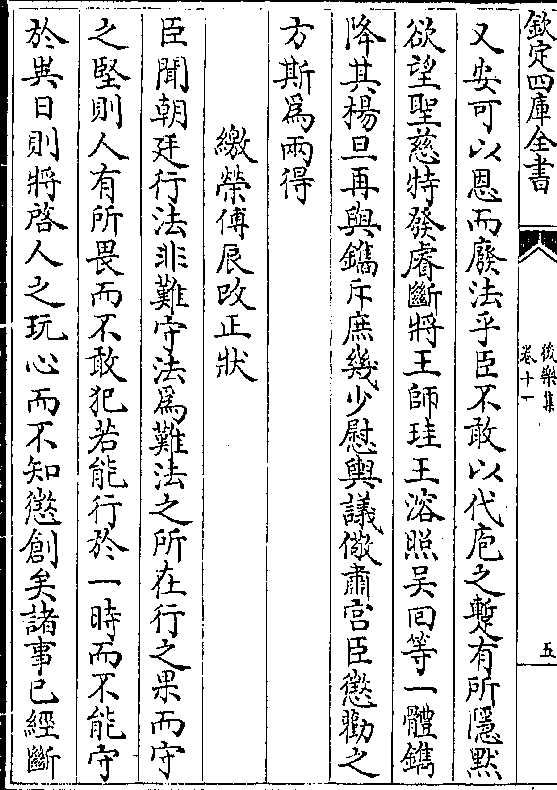 欽定四庫全書
後樂集
卷十一
五
又安可以恩而廢法乎臣不敢以代庖之蹔有所隱黙
欲望聖慈特發睿斷將王師珪王溶照吴回等一體鐫
降其楊旦再與鐫斥庶幾少慰輿議儆肅宫臣懲勸之
方斯爲兩得
繳榮傅辰改正狀
臣聞朝廷行法非難守法爲難法之所在行之果而守
之堅則人有所畏而不敢犯若能行於一時而不能守
於異日則將啓人之玩心而不知懲創矣諸事已經斷